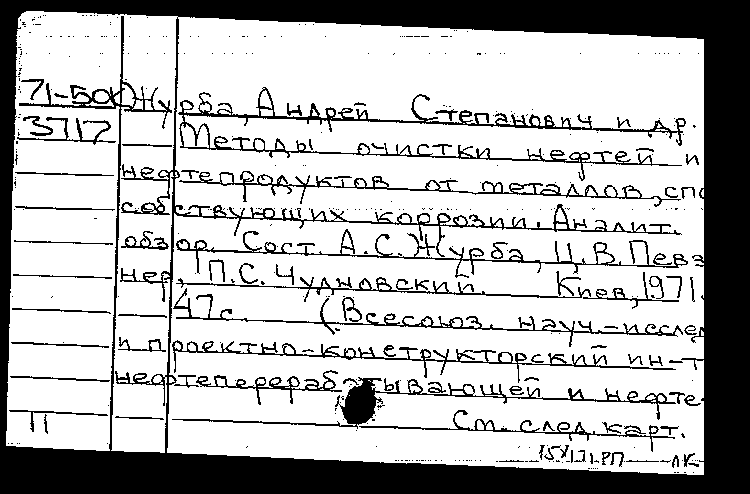 71-50 Журба, Андрей Степанович и др.
3717 Методы очистки нефтей и
нефтепродуктов от металлов, спо
собствующих коррозии. Аналит.
обзор. Сост. А.С. Журба, Ц.В. Певз
нер, П.С. Чудновский. Киев, 1971.
47с. (Всесоюз. науч.-исслед
и проектно-конструкторский ин-т
нефтеперерабатывающей и нефте
11 См. след. карт.